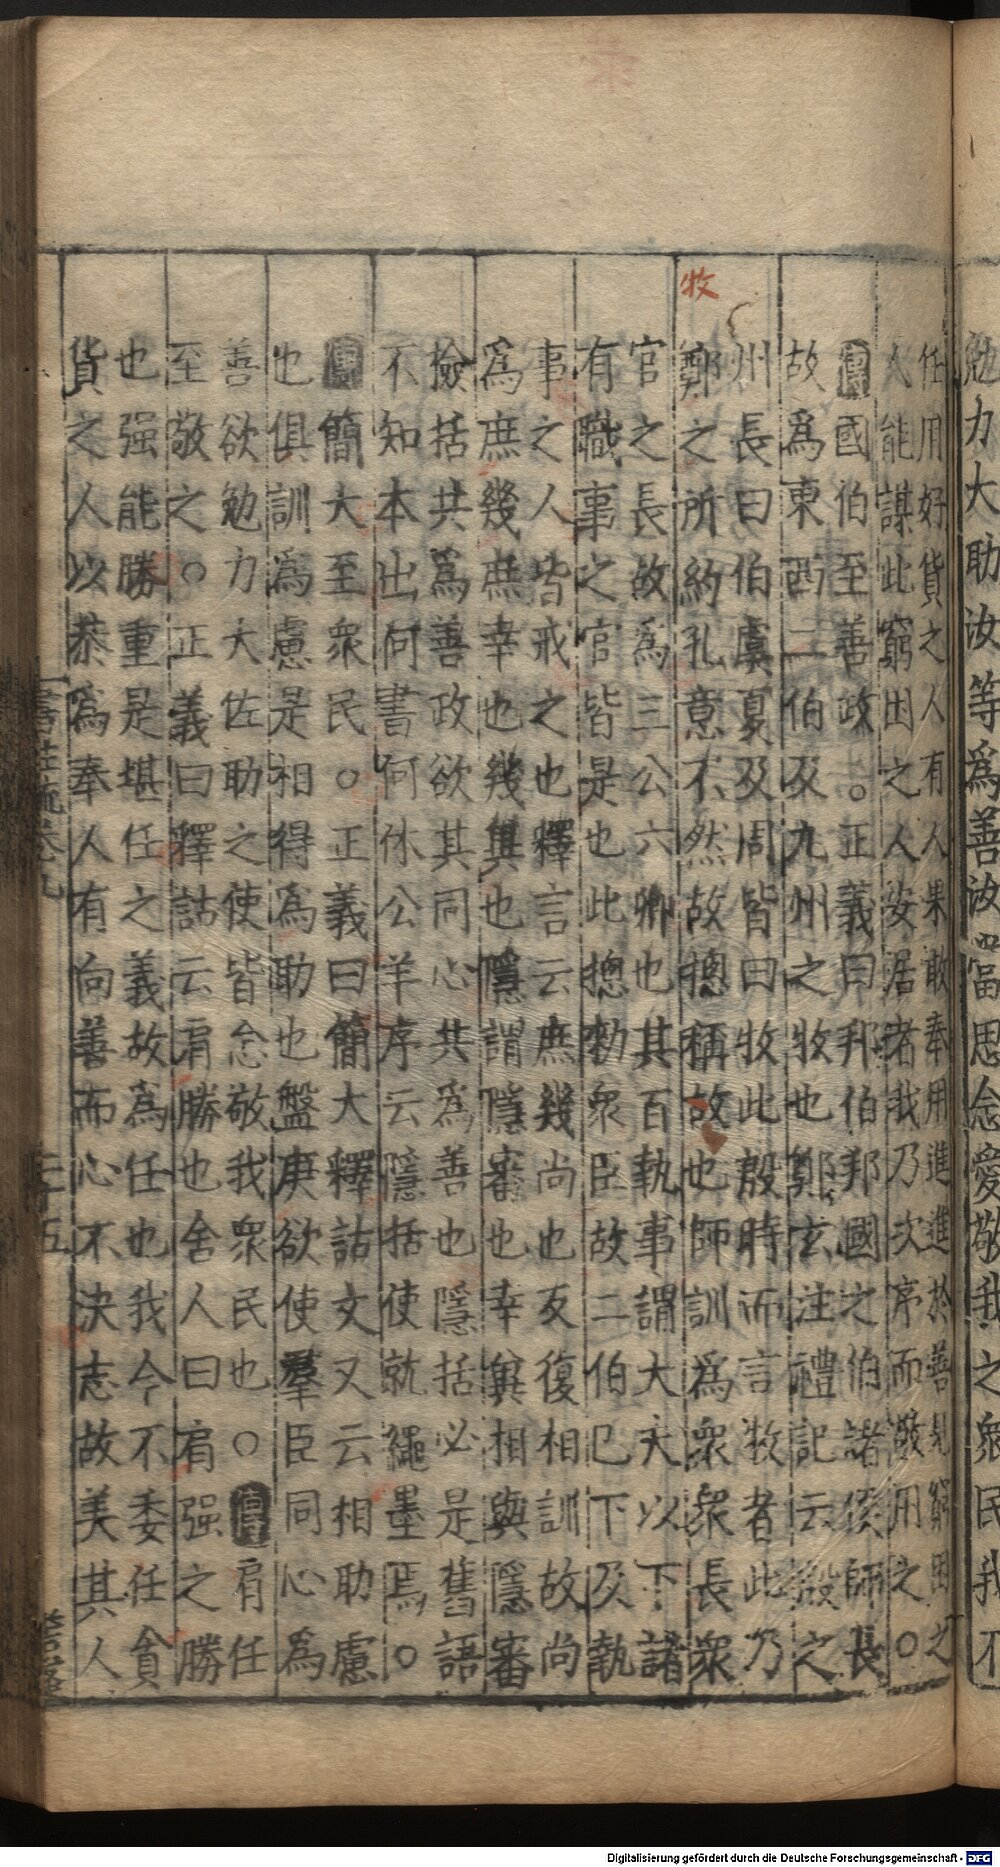 勉力大助汝等為善汝當思念愛敬我之衆民我不
任用好貨之人有人果敢奉用進進於善見窮困之
人能謀此窮困之人安居者我乃次序而敬用之○
傳國伯至善政○正義曰邦伯邦國之伯諸侯師長
故為東西二伯及九州之牧也鄭玄注禮記云殷之
州長曰伯虞夏及周皆曰牧此殷時而言牧者此乃
牧
鄭之所約孔意不然故摠稱故也師訓為衆衆長衆
官之長故為三公六卿也其百執事謂大夫以下諸
有職事之官皆是也此摠勑衆臣故二伯已下及執
事之人皆戒之也釋言云庶幾尚也反復相訓故尚
為庶幾庶幸也幾兾也隱謂隱審也幸兾相與隱審
撿括共為善政欲其同心共為善也隱括必是舊語
不知本出何書何休公羊序云隱括使就繩墨焉○
傳簡大至衆民○正義曰簡大釋詁文又云相助慮
也俱訓為慮是相得為助也盤庚欲使羣臣同心為
善欲勉力大佐助之使皆念敬我衆民也○傳肩任
至敬之○正義曰釋詁云肩勝也舍人曰肩强之勝
也强能勝重是堪任之義故為任也我今不委任貪
貨之人以恭為奉人有向善而心不決志故美其人
書注疏卷九
二十五
Digitalisierung gefördert durch die Deutsche Forschungsgemeinschaft - DFG